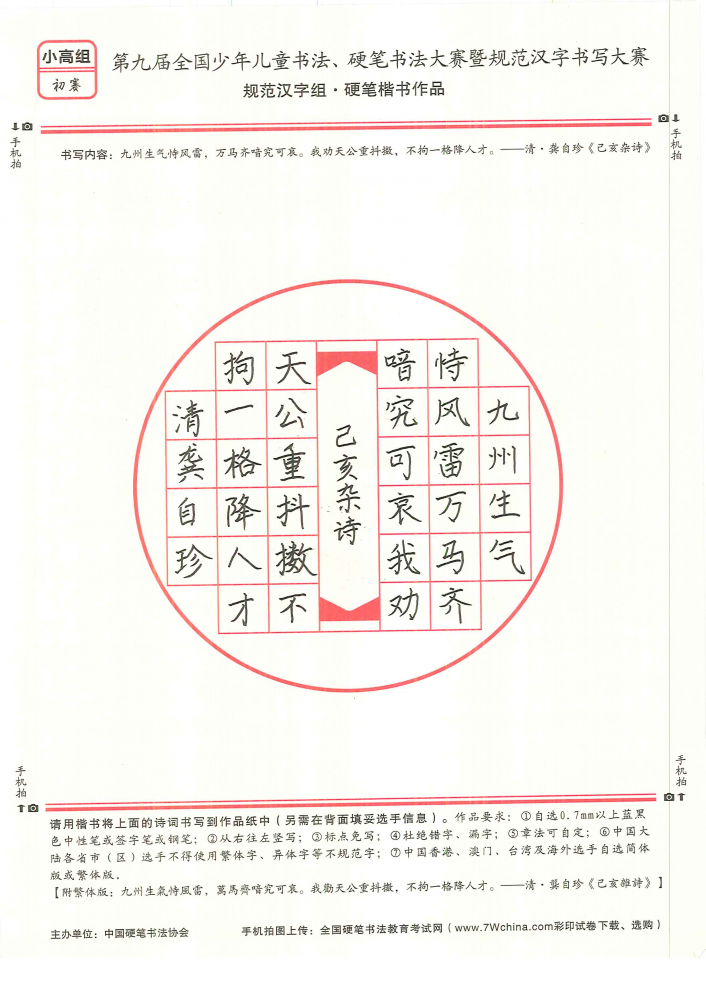 小高组
初赛
第九届全国少年儿童书法、硬笔书法大赛暨规范汉字书写大赛
规范汉字组·硬笔楷书作品
手机拍
手机拍
书写内容：九州生气恃风雷，万马齐喑究可哀。我劝天公重抖擞，不拘一格降人才。——清·龚自珍《己亥杂诗》
九州生气
恃风雷万马齐
喑究可哀我劝
己亥杂诗
天公重抖擞不
拘一格降人才
清龚自珍
手机拍
手机拍
请用楷书将上面的诗词书写到作品纸中（另需在背面填妥选手信息）。作品要求：①自选0.7mm以上蓝黑
色中性笔或签字笔或钢笔；②从右往左竖写；③标点免写；④杜绝错字、漏字；⑤章法可自定；⑥中国大
陆各省市（区）选手不得使用繁体字、异体字等不规范字；⑦中国香港、澳门、台湾及海外选手自选简体
版或繁体版.
【附繁体版：九州生氣恃風雷，萬馬齊喑究可哀。我勸天公重抖擻，不拘一格降人才。——清·龔自珍《己亥雜詩》】
主办单位：中国硬笔书法协会
手机拍图上传：全国硬笔书法教育考试网（www.7Wchina.com彩印试卷下载、选购）